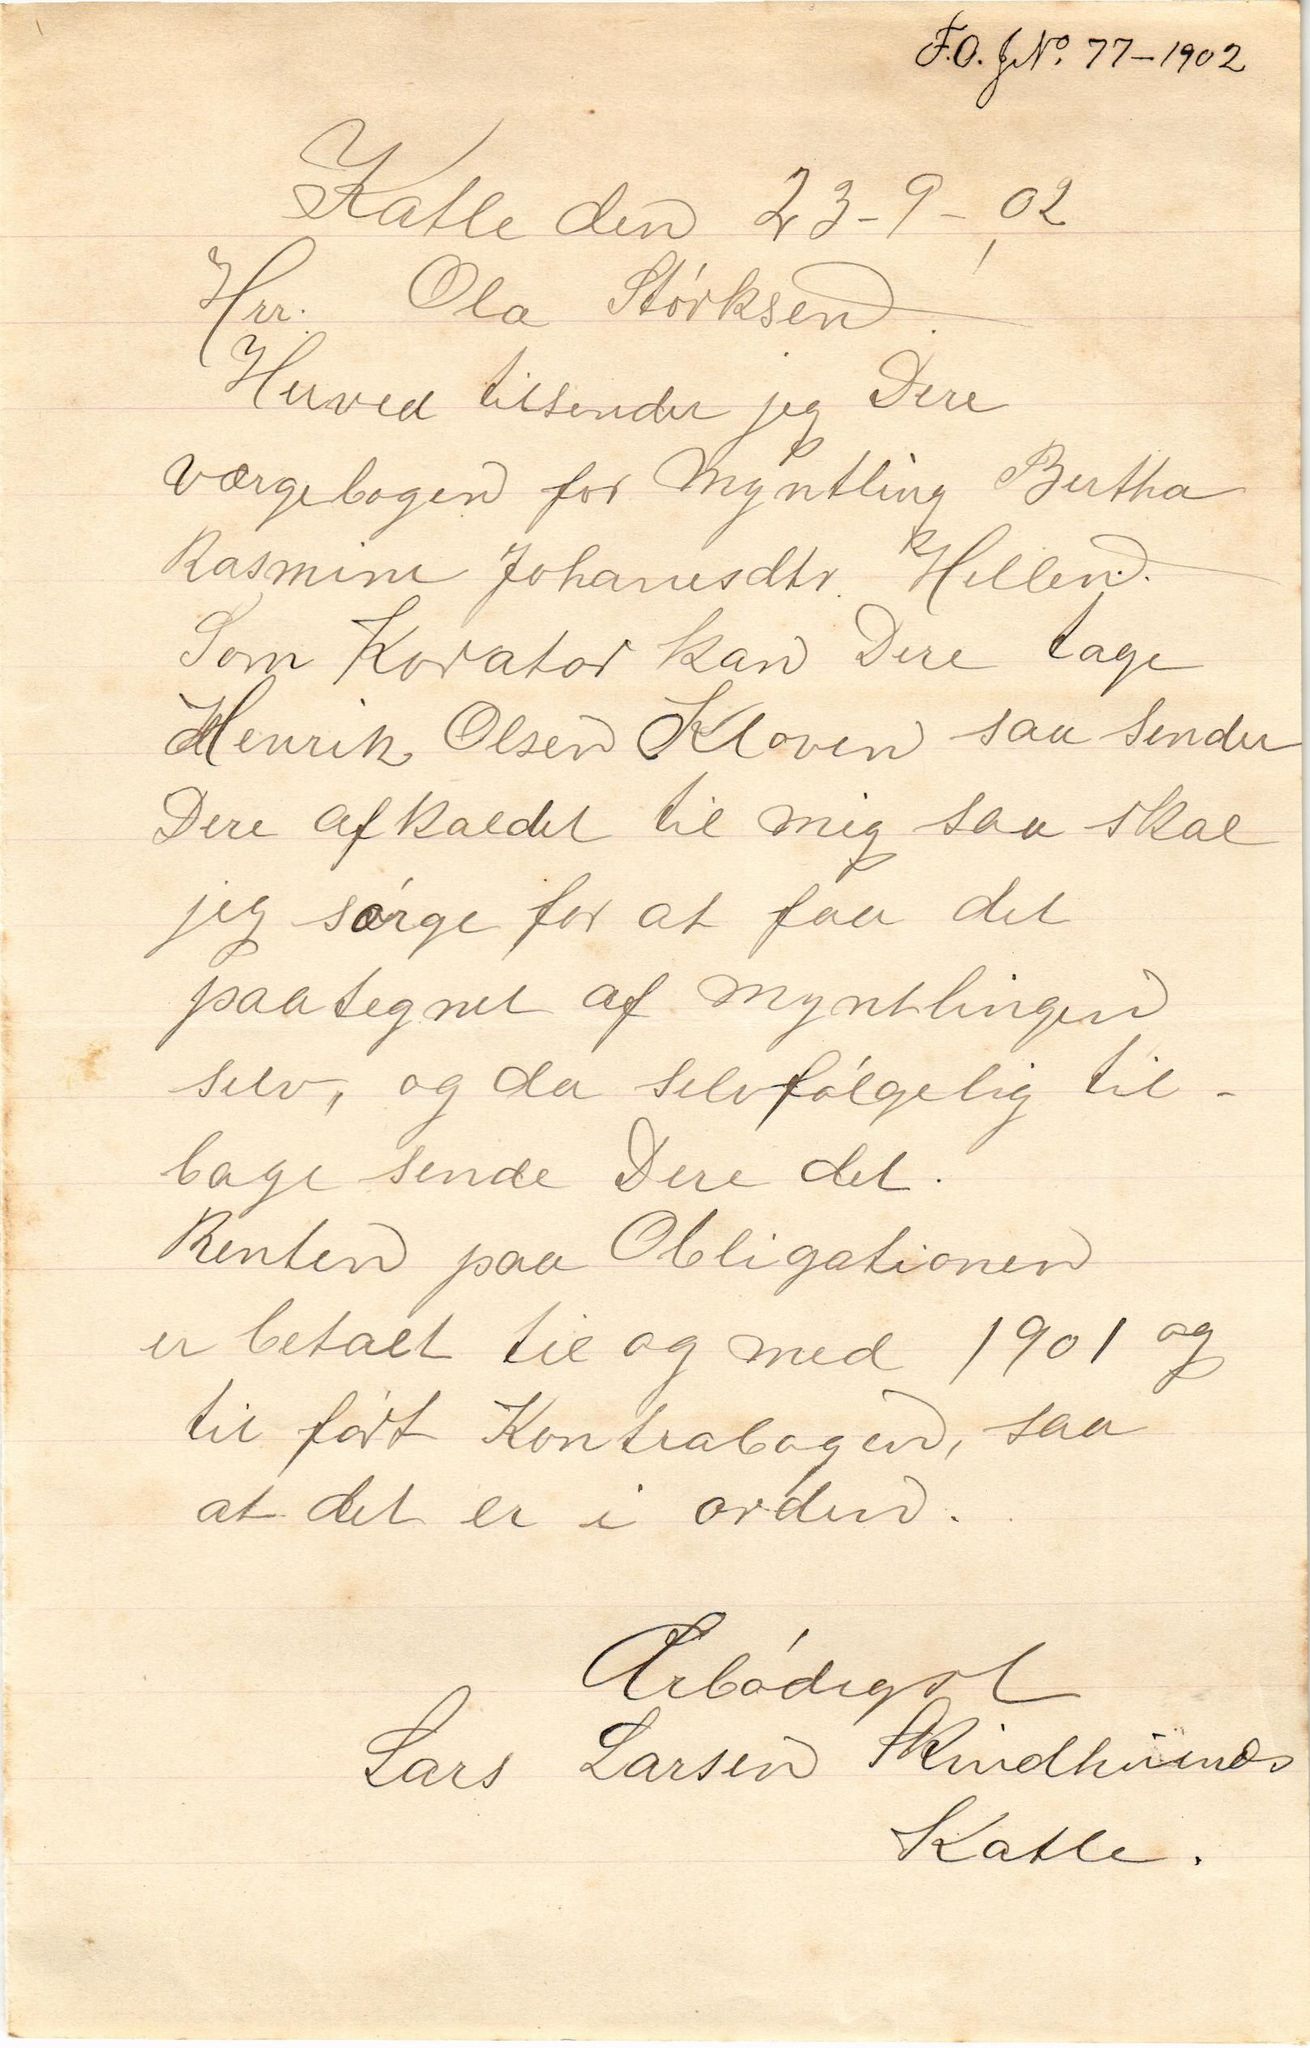 F.O. JNo. 77-1902
Katle den 23-9-02
Hrr. Ola Störksen.
Herved tilsender jeg Dere
værgebogen for Myntling Bertha
Rasmine Johanesdtr. Hellen.
Som Korator kan Dere tage
Henrik Olsen Kloven saa sender
Dere afkaldet til mig saa skal
jeg sørge for at faa det
paategnet af myntlingen
selv, og da selvfölgelig til-
bage sende Dere det.
Renten paa Obligationen
er betalt til og med 1901 og
til fört Kontrabogen, saa
at det er i orden.
Ærbödigst
Lars Larsen
Katle.